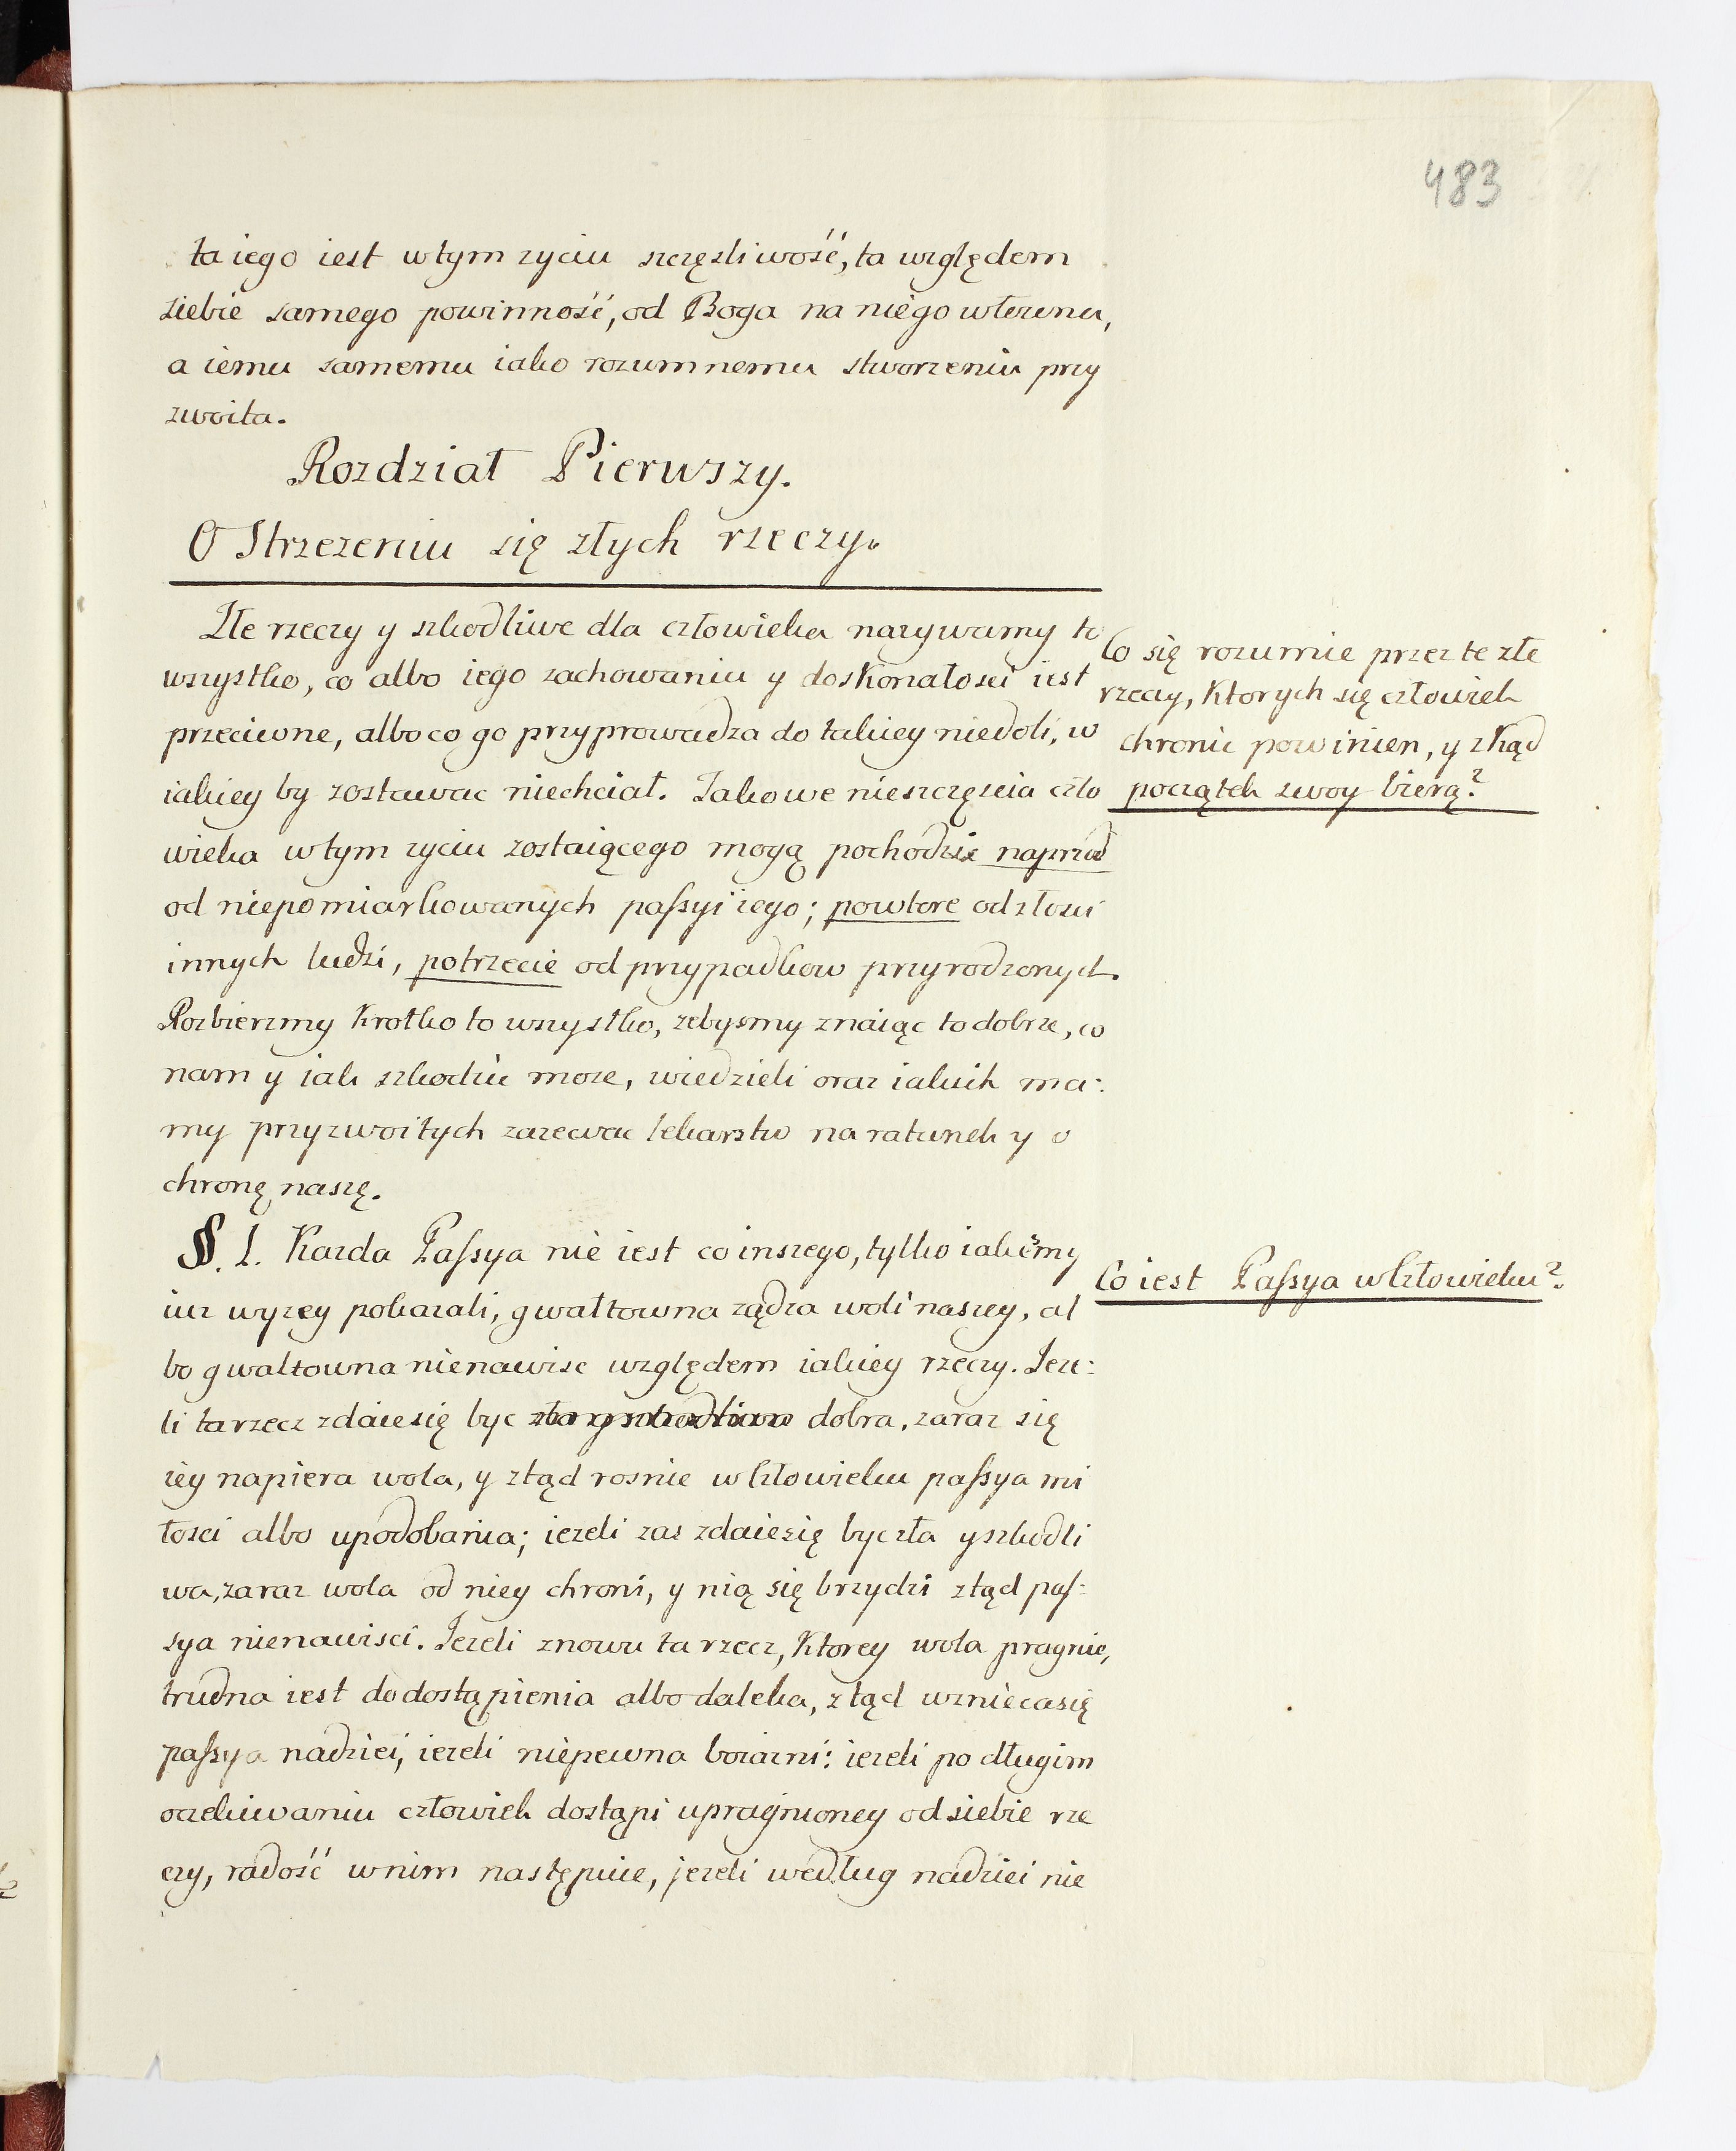 483
ta iego iest w tym zyciu szczęsliwość, ta względem
siebie samego powinność, od Boga na niego włozona,
a iemu samemu iako rozumnemu stworzeniu przy
zwoita.
Rozdział Pierwszy.
O Strzezeniu się złych rzeczy.
Złe rzeczy y szkodliwe dla człowieka nazywamy to
wszystko, co albo iego zachowaniu y doskonałosci iest
przeciwne, albo co go przyprowadza do takiey niedoli, w
iakiey by zostawac niechciał. Takowe nieszczęscia czło
wieka w tym zyciu zostaiącego mogą pochodzic naprzod
od niepomiarkowanych passyi iego; powtore od złosci
innych ludzi, potrzecie od przypadkow przyrodzonych.
Rozbierzmy krotko to wszystko, zebysmy znaiąc to dobrze, co
nam y iak szkodzic moze, wiedzieli oraz iakich ma:
my przyzwoitych zazewac lekarstw na ratunek y o
chronę naszę.
§. 1. Kazda Passya nie iest co inszego, tylko iakesmy
iuz wyzey pokazali, gwałtowna ządza woli naszey, al
bo gwałtowna nienawisc względem iakiey rzeczy. Jeze:
li ta rzecz zdaie się byc zła y szkodliwa dobra, zaraz się
iey napiera wola, y ztąd rosnie w Człowieku passya mi
łosci albo upodobania; iezeli zas zdaie się byc zła y szkodli
wa, zaraz wola od niey chroni, y nią się brzydzi ztąd pas:
sya nienawisci. Jezeli znowu ta rzecz, Ktorey wola pragnie,
trudna iest do dostąpienia albo daleka, ztąd wznieca się
passya nadziei, iezeli niepewna boiazni: iezeli po długim
oczekiwaniu człowiek dostąpi upragnioney od siebie rze
czy, radość w nim następuie, jezeli według nadziei nie
Co się rozumie przez te złe
rzeczy, Ktorych się człowiek
chronic powinien, y zkąd
początek swoy bierą?
Co iest Passya w Człowieku?